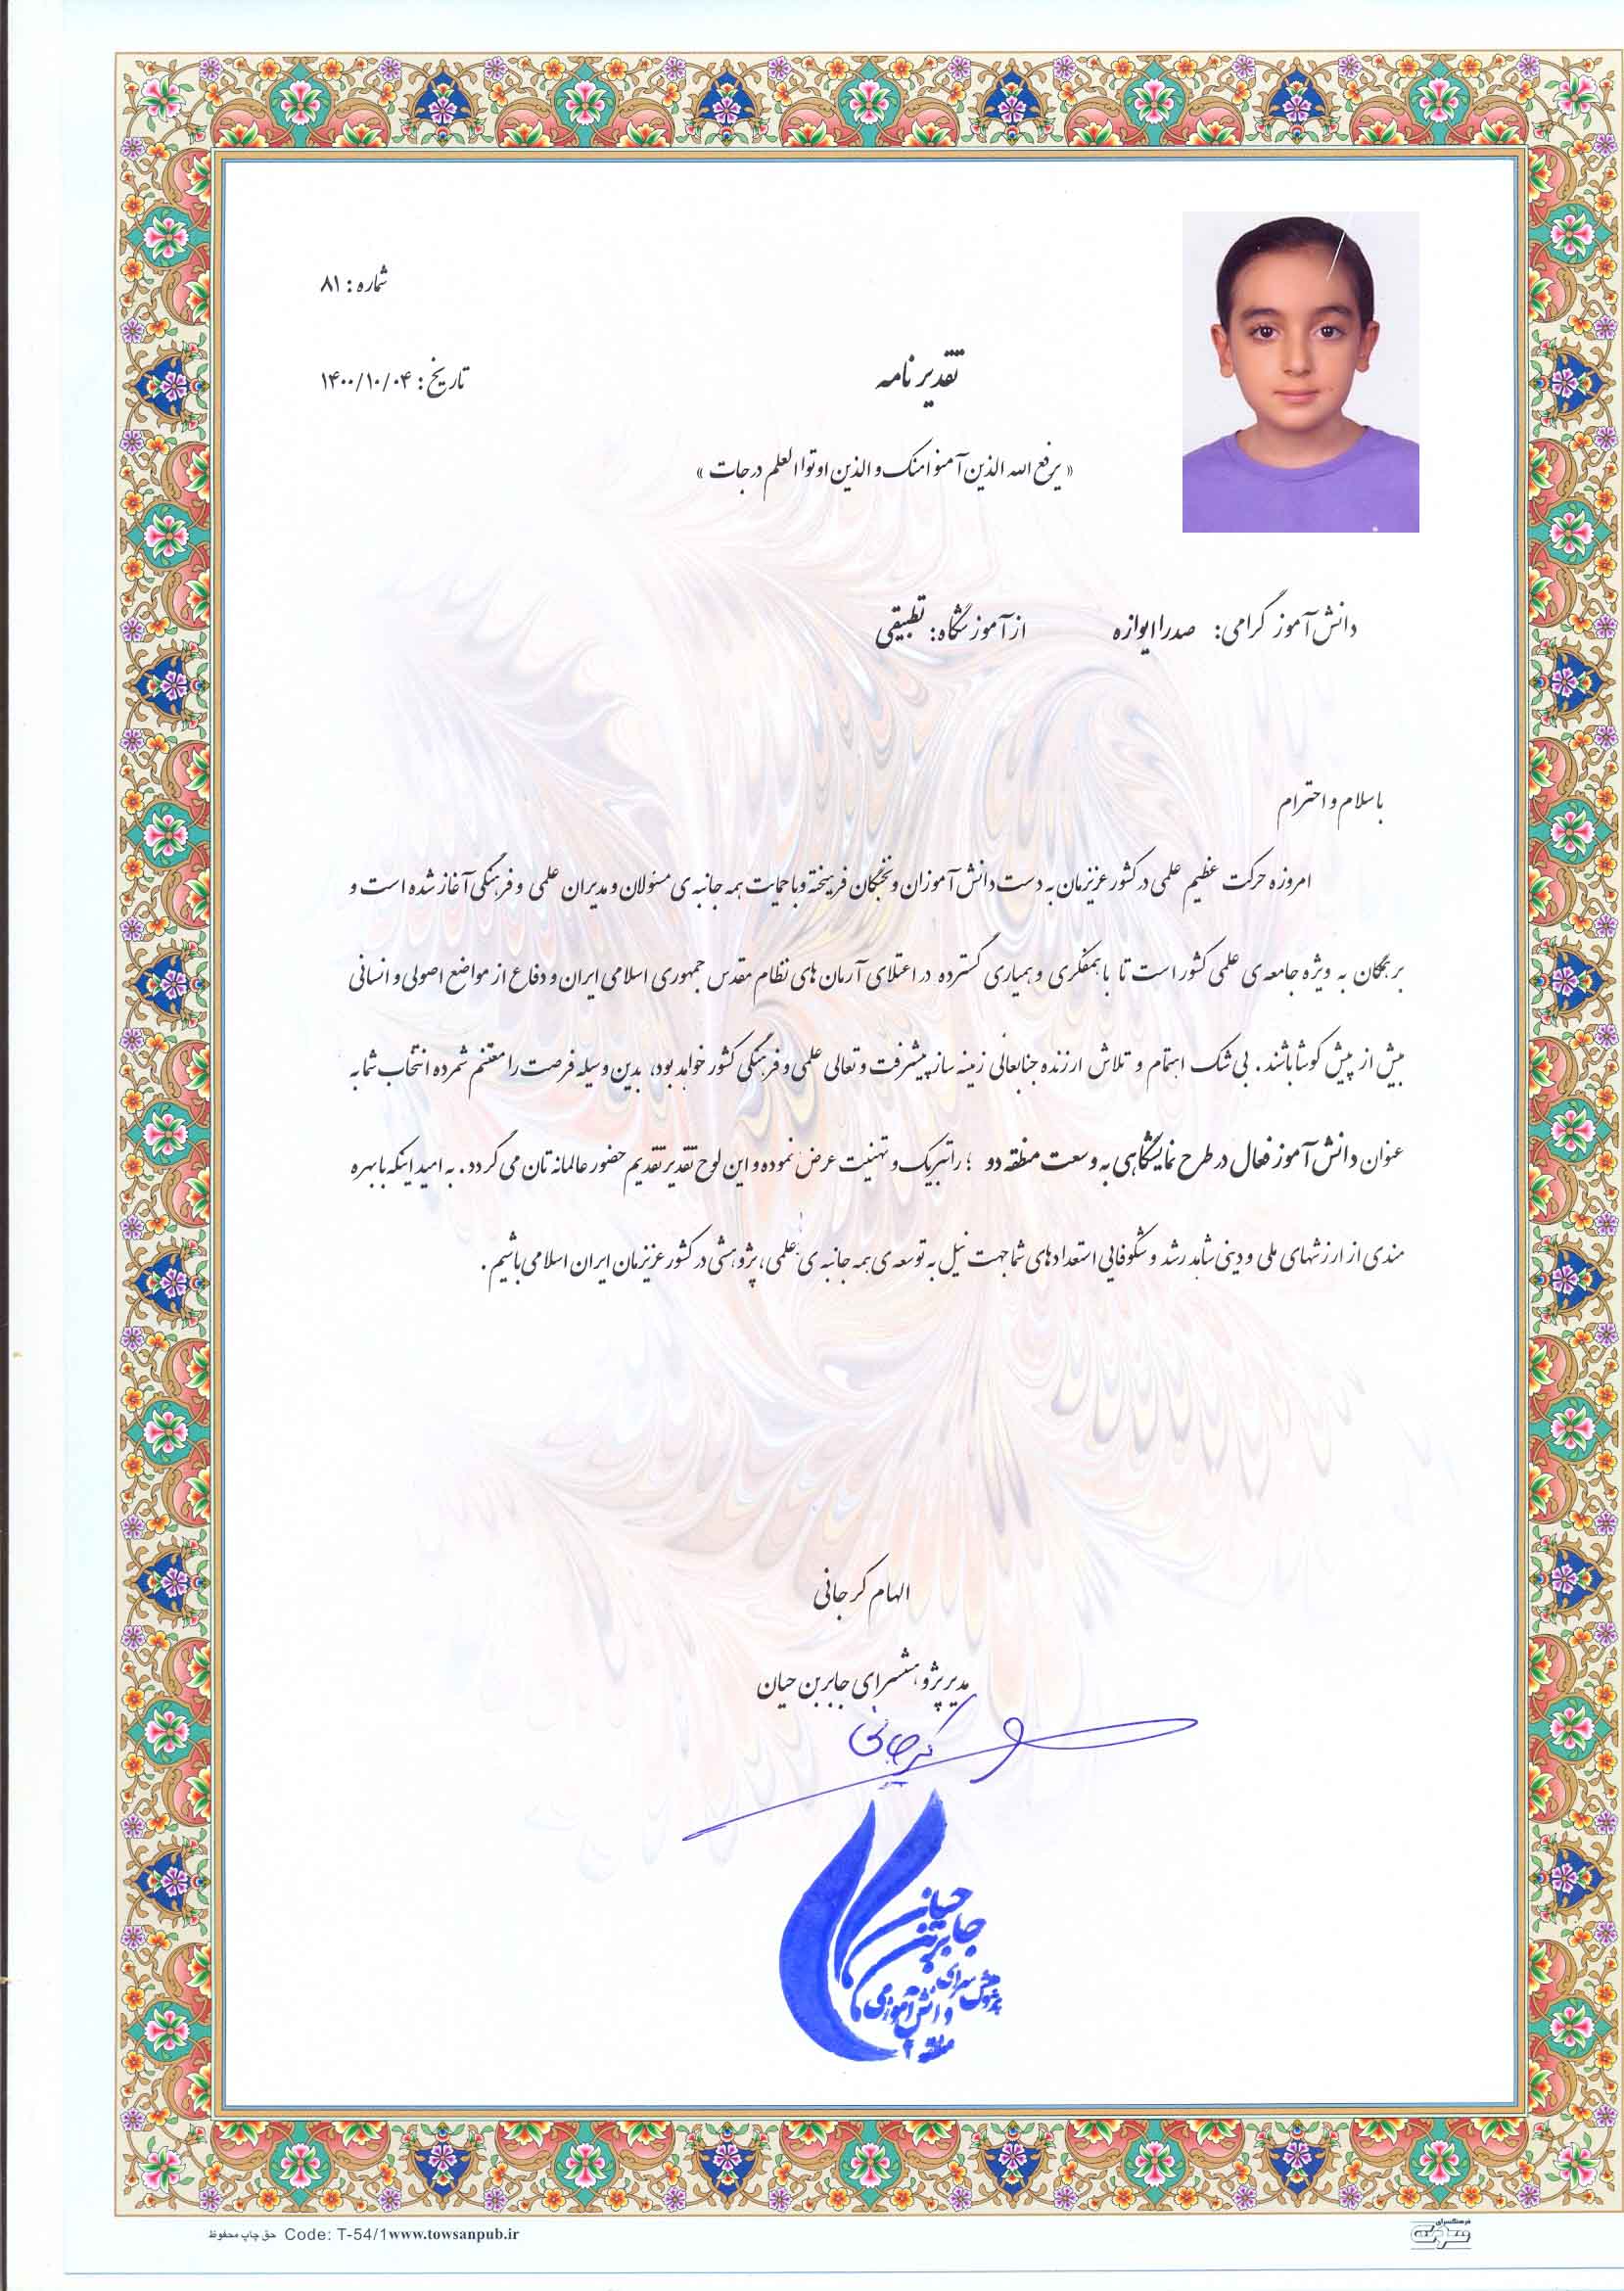 شماره : ۸۱
تاریخ : ۱۴۰۰/۱۰/۰۴
تقدیر نامه
« یرفع الله الذین آمنوا منک و الذین اوتوا العلم درجات »
دانش آموز گرامی: صدرا ایوازه از آموزشگاه: تطبیقی
با سلام و احترام
امروزه حرکت عظیم علمی در کشور عزیزمان به دست دانش آموزان و نخبگان فرهیخته و با حمایت همه جانبه ی مسئولان و مدیران علمی و فرهنگی آغاز شده است و
بر همگان به ویژه جامعه ی علمی کشور است تا با همفکری و همیاری گسترده در اعتلای آرمان های نظام مقدس جمهوری اسلامی ایران و دفاع از مواضع اصولی و انسانی
بیش از پیش کوشا باشند . بی شک اهتمام و تلاش ارزنده جنابعالی زمینه ساز پیشرفت و تعالی علمی و فرهنگی کشور خواهد بود، بدین وسیله فرصت را مغتنم شمرده انتخاب شما به
عنوان دانش آموز فعال در طرح نمایشگاهی به وسعت منطقه دو ؛ را تبریک و تهنیت عرض نموده و این لوح تقدیر تقدیم حضور عالمانه تان می گردد . به امید اینکه با بهره
مندی از ارزشهای ملی و دینی شاهد رشد و شکوفایی استعدادهای شما جهت نیل به توسعه ی همه جانبه ی علمی، پژوهشی در کشور عزیزمان ایران اسلامی باشیم .
الهام کرجانی
مدیر پژوهشسرای جابر بن حیان
کرجانی
جابربن حیان
پژوهش سرای
دانش آموزی
منطقه ۲
حق چاپ محفوظ Code: T-54/1 www.towsanpub.ir